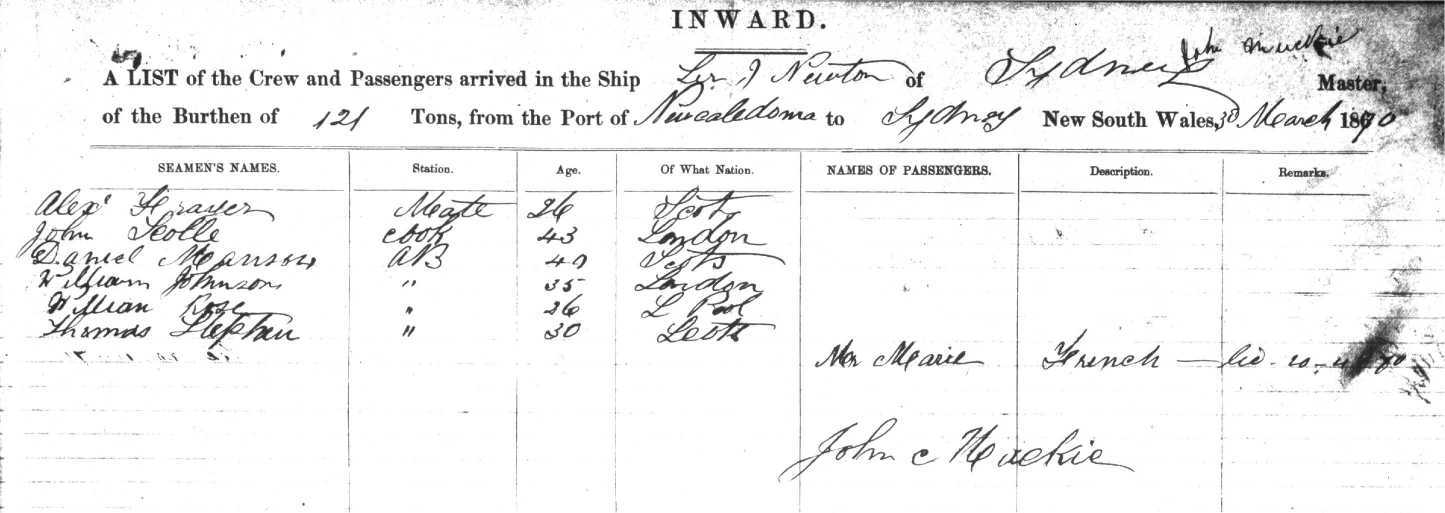 INWARD.
John Mackie
A LIST of the Crew and Passengers arrived in the Ship Sir I Newton of Sydney Master,
of the Burthen of 121 Tons, from the Port of Newcaledonia to Sydney New South Wales, 3d March 1870
SEAMEN'S NAMES. Station. Age. Of What Nation. NAMES OF PASSENGERS. Description. Remarks.
Alexr Frazer Meate 26 Scots
John Scolle cook 43 London
Daniel Manson AB 40 Scots
William Johnson " 35 London
William Rose " 26 L Pool
Thomas Stephen " 30 Scots
Mr Marie French
John c Mackie